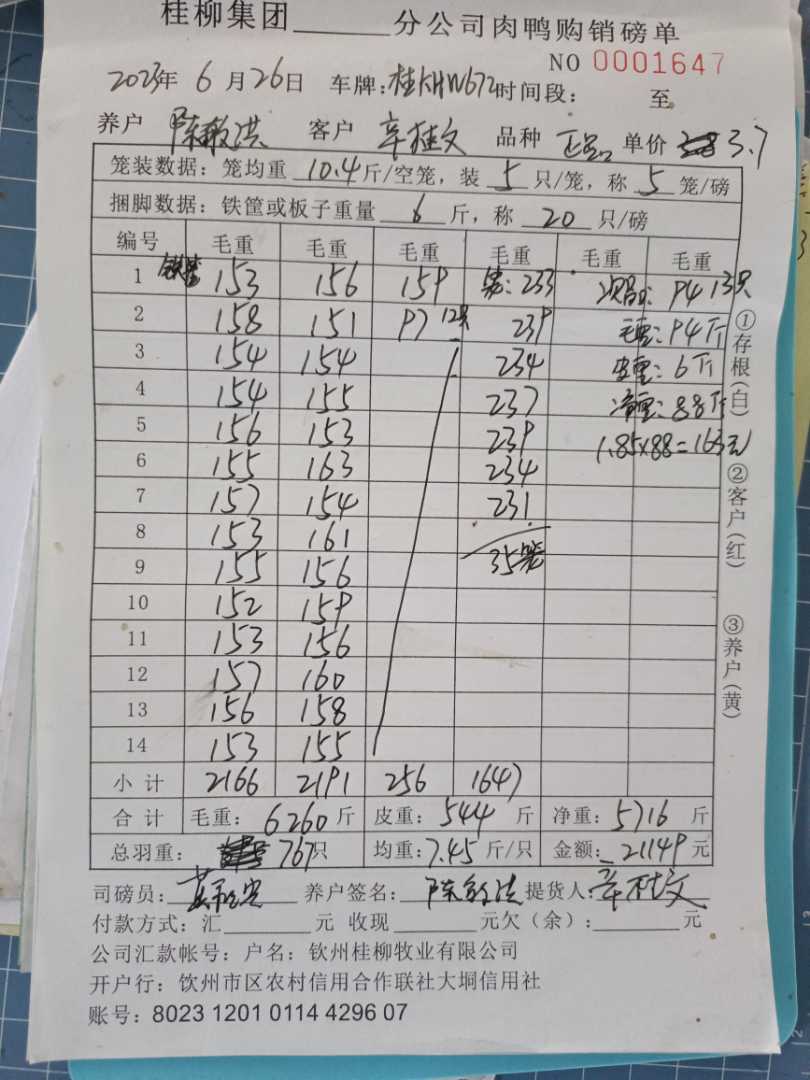 桂柳集团______分公司肉鸭购销磅单
NO 0001647
2023年 6月26日 车牌:桂KHW672 时间段: 至
养户 陈敏洪 客户 辛桂文 品种 正品 单价 3.7
笼装数据:笼均重 10.4 斤/空笼,装 5 只/笼,称 5 笼/磅
捆脚数据:铁筐或板子重量 6 斤,称 20 只/磅
编号 毛重 毛重 毛重 毛重 毛重 毛重
1 铁筐 153 156 159 笼:233 次品: 94 13只
2 158 151 97 12只 239 毛重:94斤
3 154 154 234 皮重:6斤
4 154 155 237 净重:88斤
5 156 153 239 1.85×88=163元
6 155 163 234
7 157 154 231
8 153 161
9 155 156 35笼
10 152 159
11 153 156
12 157 160
13 156 158
14 153 155
小计 2166 2191 256 1647
合计 毛重: 6260 斤 皮重: 544 斤 净重: 5716 斤
总羽重: 767只 均重:7.45 斤/只 金额: 21149 元
司磅员: 养户签名: 陈敏洪 提货人:辛桂文
付款方式:汇______元 收现______元欠(余):______元
公司汇款帐号:户名:钦州桂柳牧业有限公司
开户行:钦州市区农村信用合作联社大垌信用社
账号:8023 1201 0114 4296 07
①存根(白)
②客户(红)
③养户(黄)